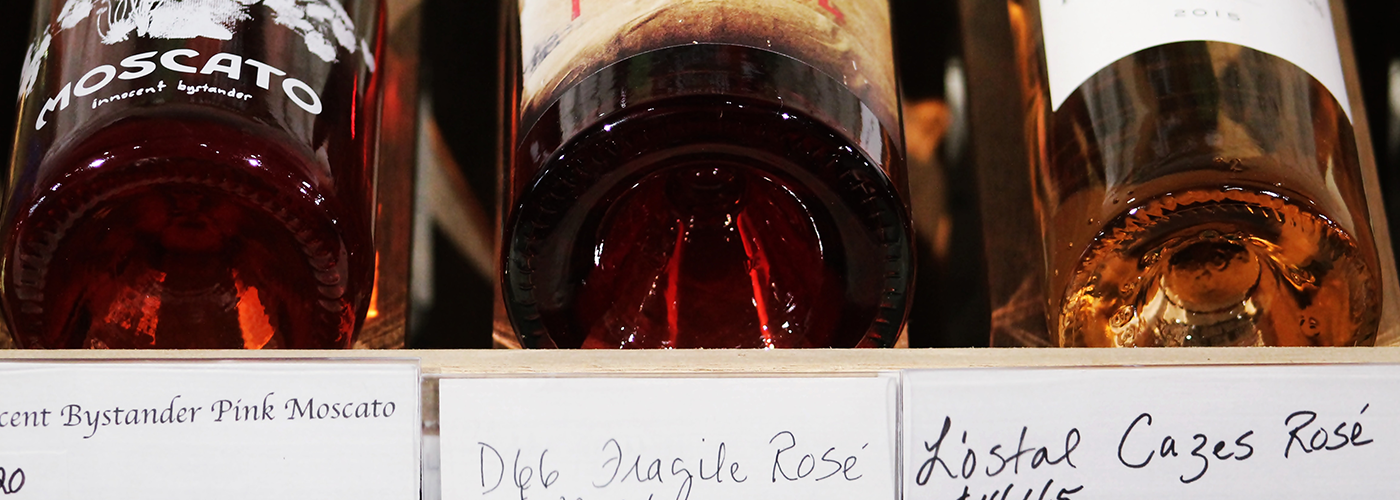 MOSCATO
innocent bystander
2015
cent Bystander Pink Moscato
20
D66 Fragile Rosé
L'ostal Cazes Rosé